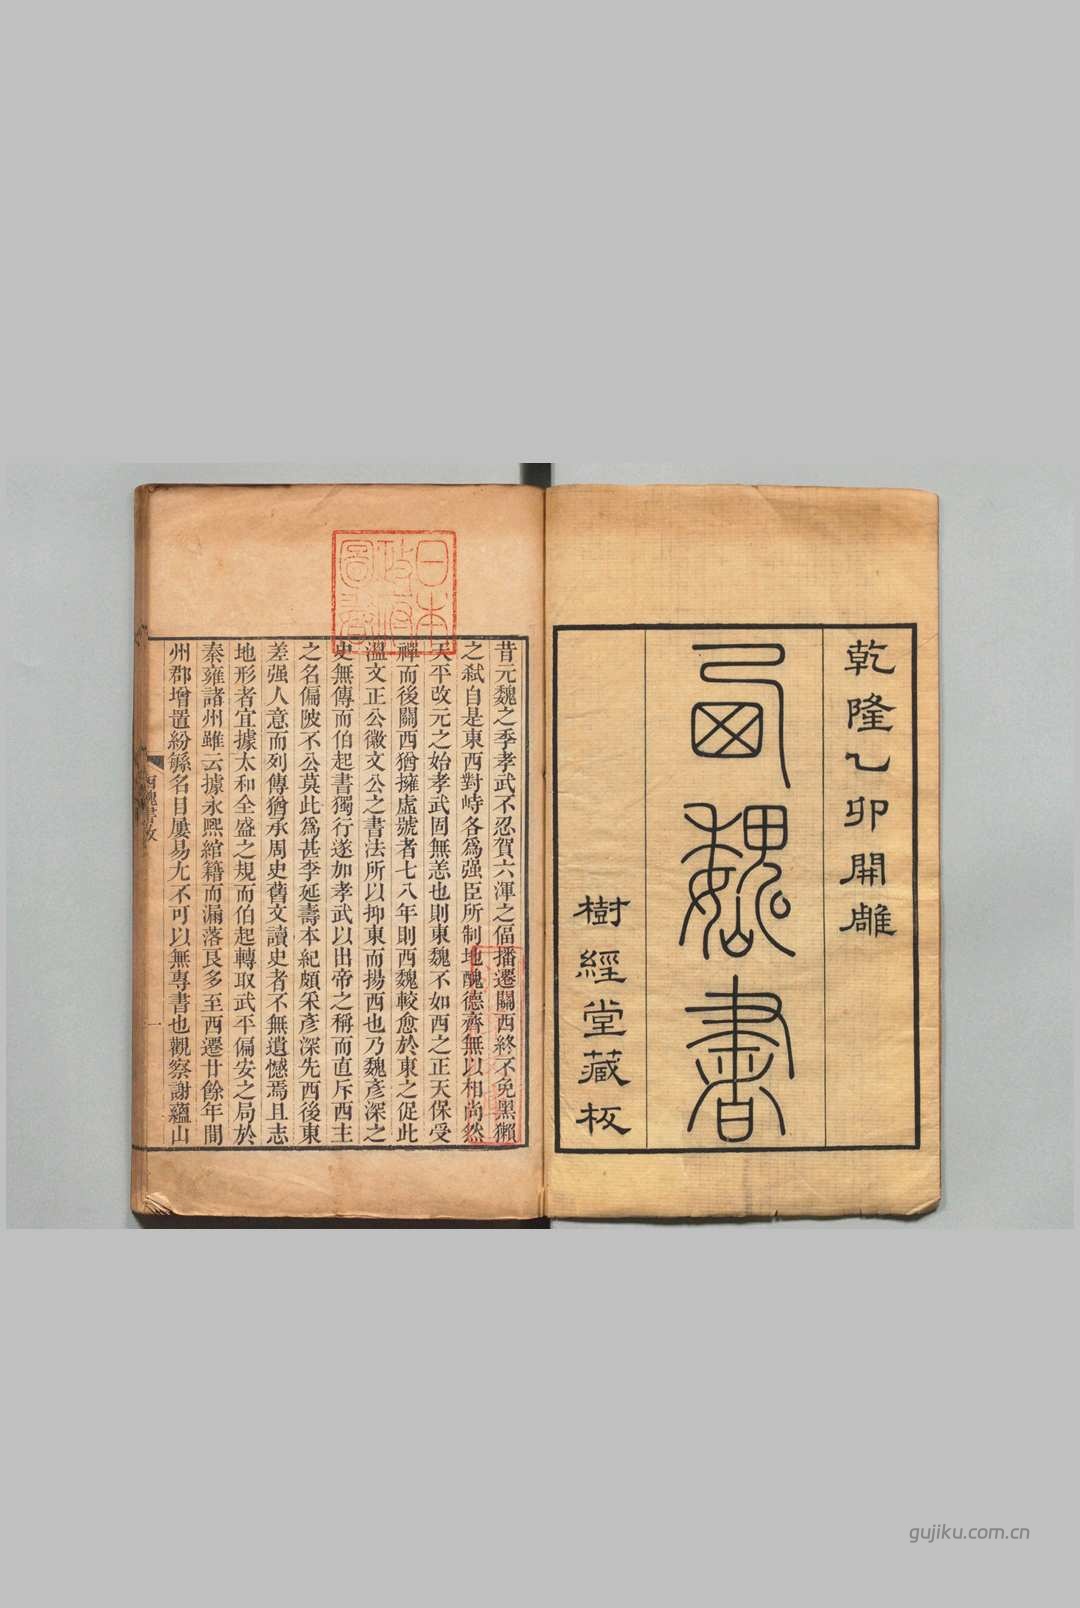 乾隆乙卯開雕
西魏書
樹經堂藏板
日本政府圖書
昔元魏之季孝武不忍賀六渾之偪播遷關西終不免黑獺
之弑自是東西對峙各爲强臣所制地醜德齊無以相尚然
天平改元之始孝武固無恙也則東魏不如西之正天保受
禪而後關西猶擁虛號者七八年則西魏較愈於東之促此
溫文正公徽文公之書法所以抑東而揚西也乃魏彥深之
史無傳而伯起書獨行遂加孝武以出帝之稱而直斥西主
之名偏陂不公莫此爲甚李延壽本紀頗采彥深先西後東
差强人意而列傳猶承周史舊文讀史者不無遺憾焉且志
地形者宜據太和全盛之規而伯起轉取武平偏安之局於
秦雍諸州雖云據永熙綰籍而漏落良多至西遷廿餘年間
州郡增置紛緐名目屢易尤不可以無專書也觀察謝蘊山
一
gujiku.com.cn